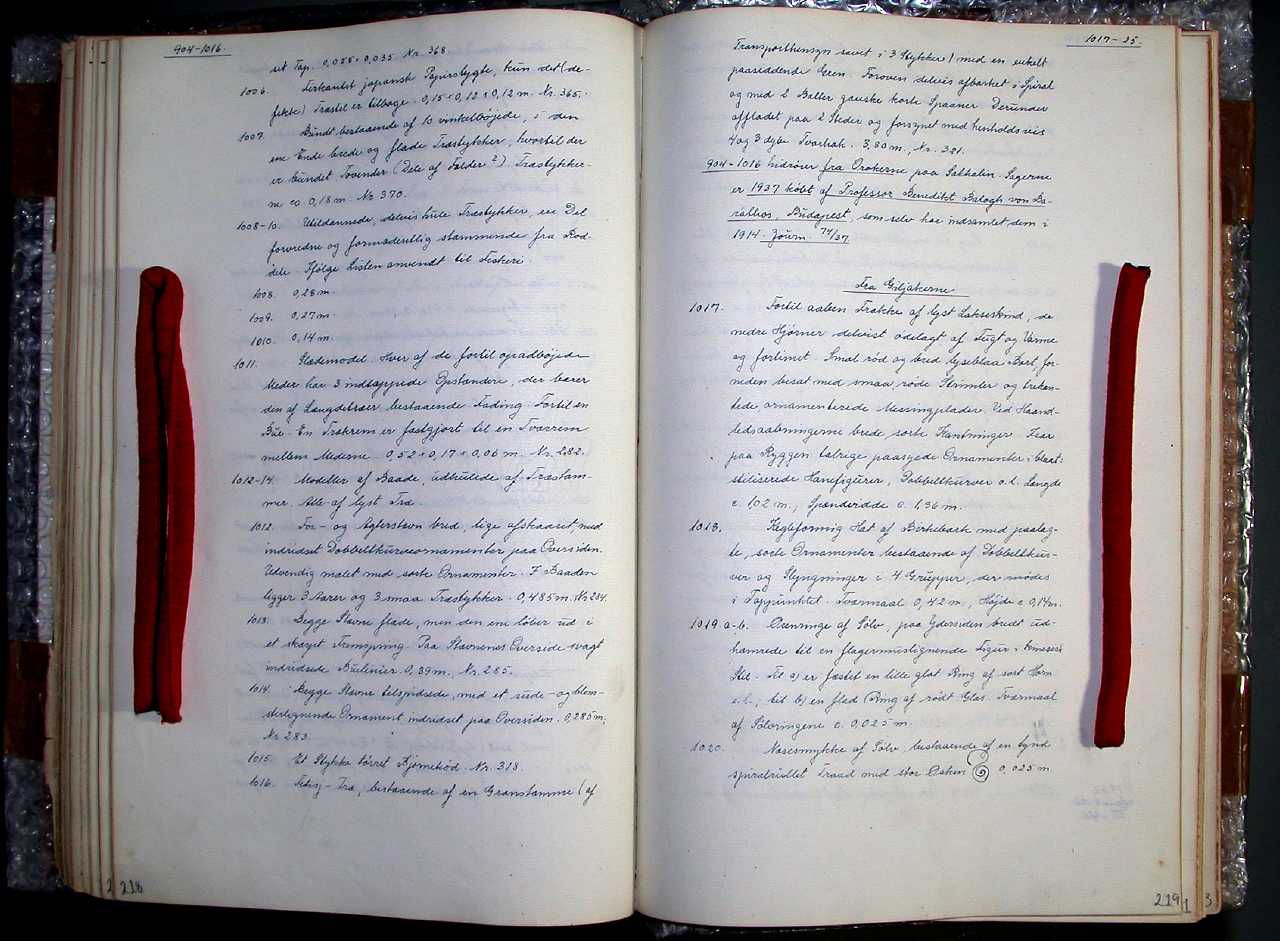 904-1016.
set Tap. 0,055 × 0,035 Nr. 368.
1006. Firkantet japansk Papirslygte, kun det (de-
fekte) Træstel er tilbage. 0,15 × 0,12 × 0,12 m. Nr. 365.
1007. Bundt bestaaende af 10 vinkelbøjede, i den
ene Ende brede og flade Træstykker, hvortil der
er bundet Tovender (Dele af Fælder?). Træstykker-
ne ca 0,18 m. Nr. 370.
1008-10. Uddannede, delvis hule Træstykker, en Del
forvredne og formodentlig stammende fra Rod-
dele. Ifølge Listen anvendt til Fiskeri.
1008. 0,28 m.
1009. 0,27 m.
1010. 0,14 m.
1011. Slædemodel. Hver af de fortil opadbøjede
Meder har 3 indtappede Opstandere, der bærer
den af Længdetræer bestaaende Lading. Fortil en
Bue. En Trækrem er fastgjort til en Tværrem
mellem Mederne 0,52 × 0,17 × 0,06 m. Nr. 282.
1012-14. Modeller af Baade, udhulede af Træstam-
mer. Alle af lyst Træ.
1012. For- og Agterstævn bred, lige afskaaret, med
indridset Dobbeltkurveornamenter paa Oversiden.
Udvendig malet med sorte Ornamenter. I Baaden
ligger 3 Aarer og 3 smaa Træstykker. 0,485 m. Nr 284.
1013. Begge Stavne flade, men den ene løber ud i
et skarpt Fremspring. Paa Stavnenes Overside svagt
indridsede Buelinier. 0,39 m. Nr. 285.
1014. Begge Stavne tilspidsede, med et rude- og blom-
sterlignende Ornament indridset paa Oversiden. 0,285 m.
Nr. 283.
1015. Et Stykke tørret Bjørnekød. Nr. 318.
1016. Fetisj-Træ, bestaaende af en Granstamme (af
2 218
1017-25.
Transporthensyn savet i 3 Stykker) med en enkelt
paasiddende Gren. Foroven delvis afbarket i Spiral
og med 2 Bælter ganske korte Spaaner. Derunder
affladet paa 2 Steder og forsynet med henholdsvis
4 og 3 dybe Tværhak. 3,80 m., Nr. 321.
904-1016 hidrører fra Orokerne paa Sakhalin. Sagerne
er 1937 købt af Professor Benedikt Balogh von Ba-
rathos, Budapest, som selv har indsamlet dem i
1914. Journ. 74/37
Fra Giljakerne
1017. Fortil aaben Frakke af lyst Lakseskind, de
nedre Hjørner delvist ødelagt af Fugt og Varme
og fortinet. Smal rød og bred lyseblaa Bort, for-
neden besat med smaa, røde Strimler og trekan-
tede, ornamenterede Messingplader. Ved Haand-
ledsaabningerne brede, sorte Kantninger. Især
paa Ryggen talrige paasyede Ornamenter i blaat:
stiliserede Hanefigurer, Dobbeltkurver o.l. Længde
c. 1,02 m., Spændvidde c. 1,36 m.
1018. Kegleformig Hat af Birkebark med paalag-
te, sorte Ornamenter bestaaende af Dobbeltkur-
ver og Slyngninger i 4 Grupper, der mødes
i Toppunktet. Tværmaal 0,42 m., Højde c. 0,14 m.
1019 a-b. Ørenringe af Sølv, paa Ydersiden bredt ud-
hamrede til en flagermuslignende Figur i kinesisk
Stil. Til a) er fæstet en lille glat Ring af sort Horn
e.l.; til b) en flad Ring af rødt Glas. Tværmaal
af Sølvringene c. 0,025 m.
1020. Næsesmykke af Sølv, bestaaende af en tynd
spiralrullet Traad med stor Øsken 0,025 m.
219 1 3